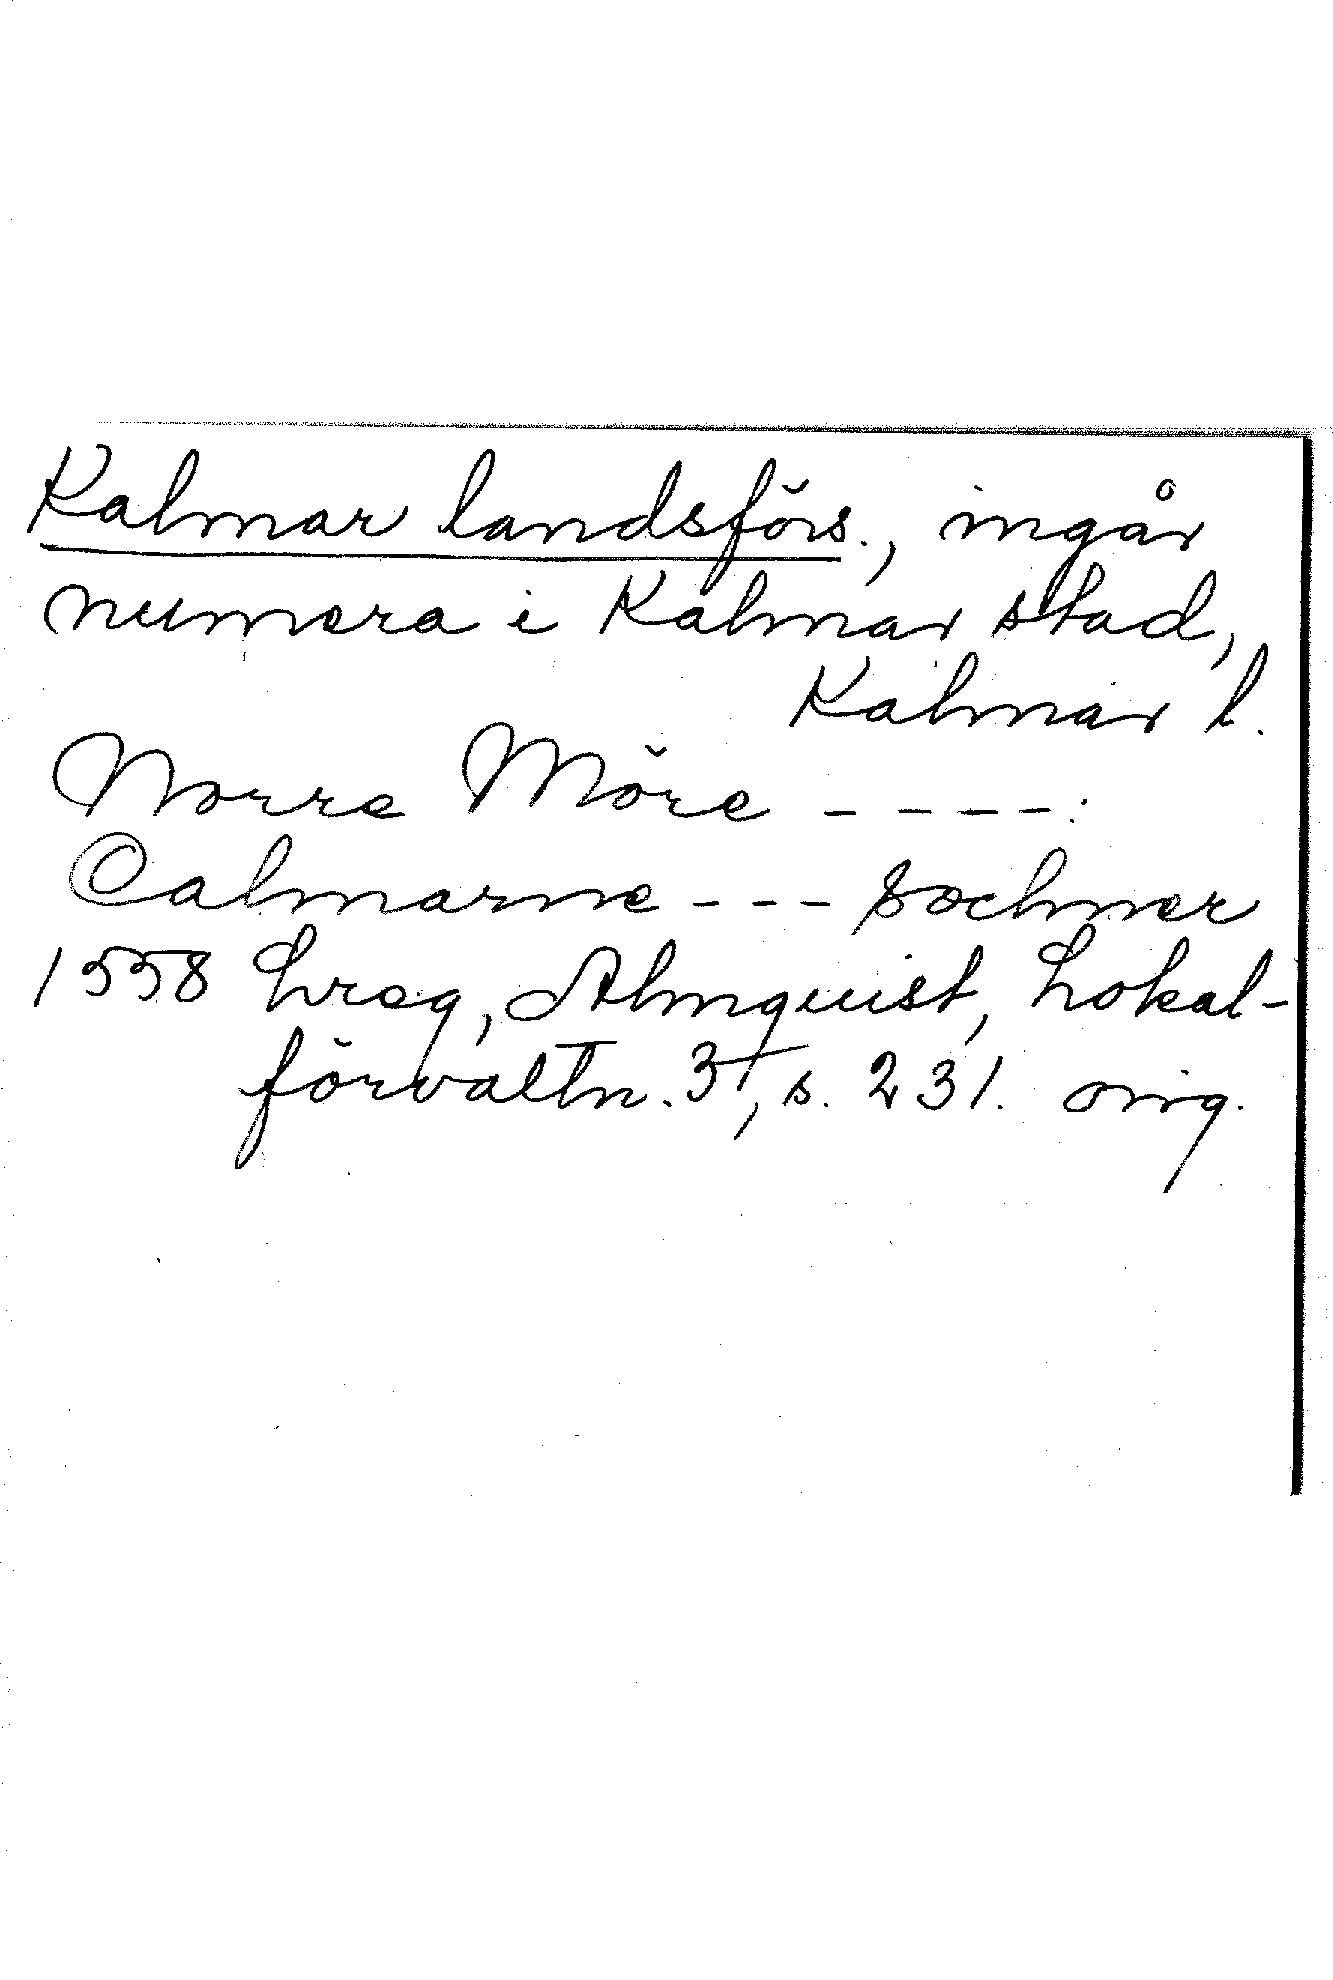 Kalmar landsförs., ingår
numera i Kalmar stad,
Kalmar l.
Norre Möre ----:
Calmarne --- sochner
1558 Lreg, Almquist, Lokal-
förvaltn. 3, s. 231. orig.